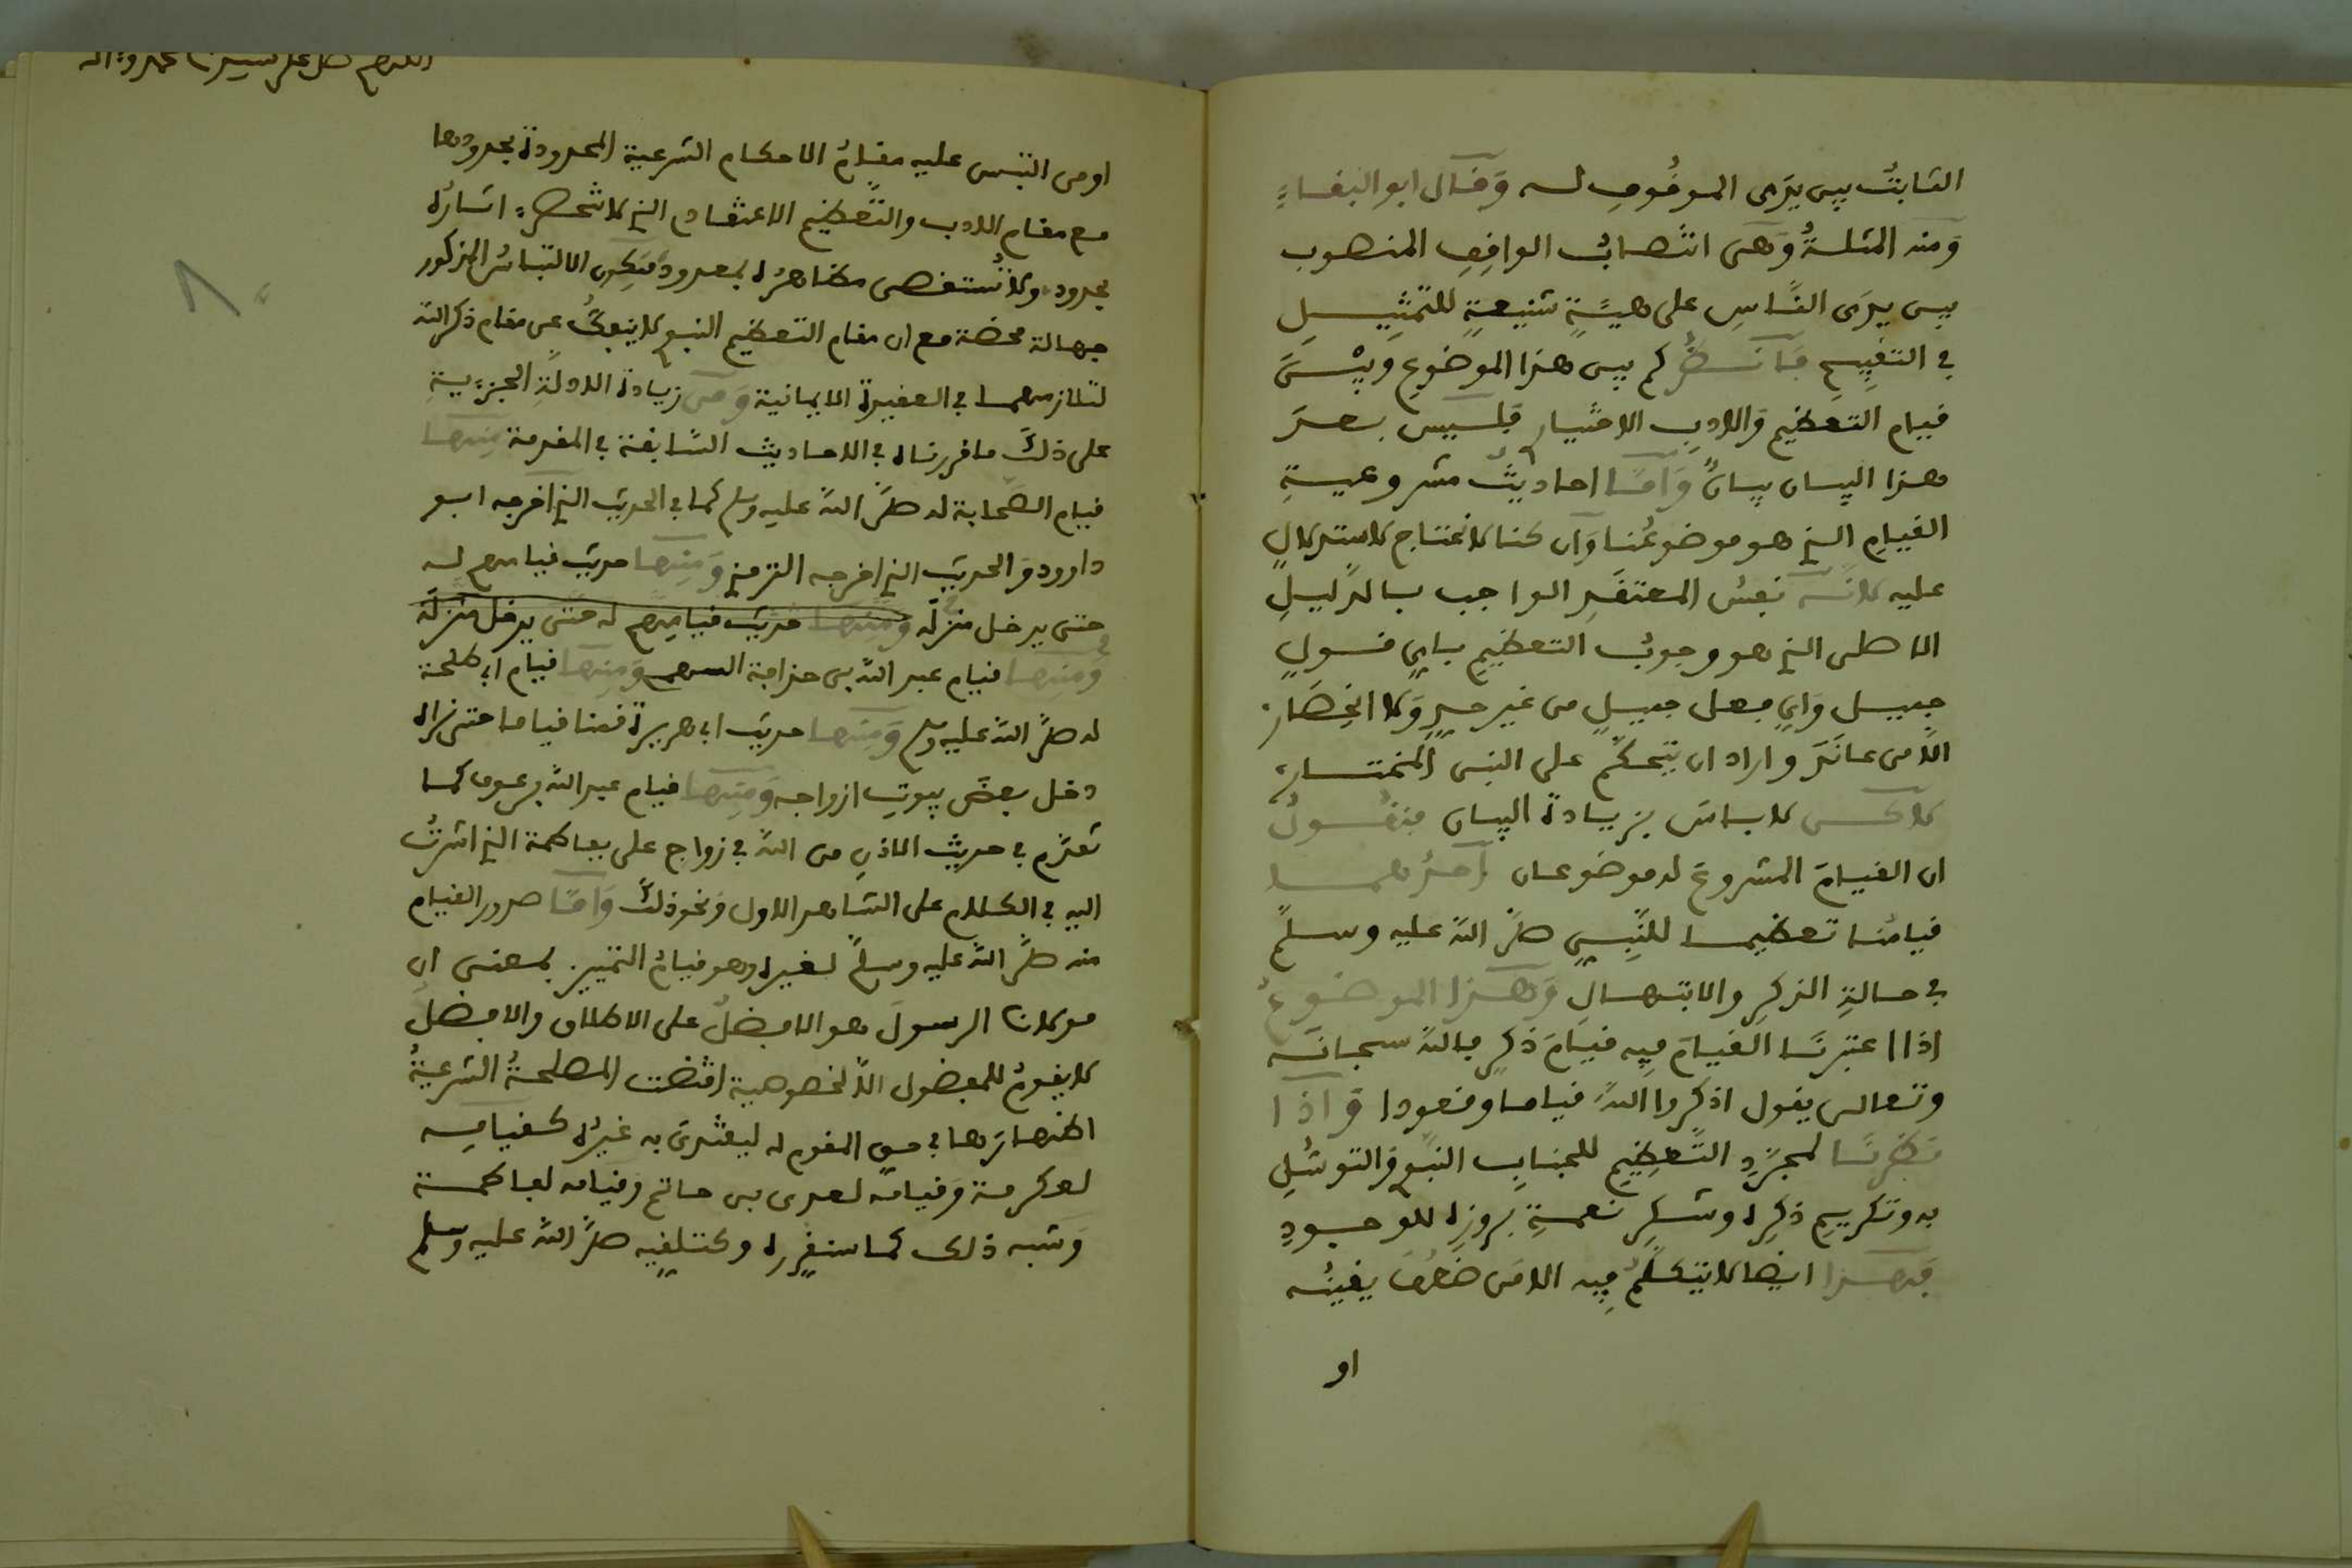 الثابتُ بين يدَى الموقُوفِ لـه وَقال ابو البقاءِ
وَمنه المثلةُ وَهى انتصابُ الواقِفِ المنصوب
بين يدَى النَّاسِ على هيئَةٍ شنيعةٍ للتمثيـلِ
فى التقبيحِ فانظُر كم بين هذا الموضوعِ وبيْنَ
قيام التعظيم وَالادبِ الاختيار فليس بعدَ
هذا البيان بيانٌ وَامَّا احاديثُ مشروعيـةِ
القيامِ الذى هو موضوعُنا وَان كنا لا نحتاج لاستدلالٍ
عليه لانَّه نفسُ المعتقَدِ الواجب بالدليلِ
الاصلى الذى هو وجوبُ التعظيم باىِ قـولٍ
جميـل وَاىِ فعل جميـلٍ من غير حدٍ وَلا انحِصَار
الَّا من عانَدَ واراد ان يتحكَّم على النبى المختـار
لاكـن لا بـاسَ بزيـادة البيان فنقُـولُ
ان القيـامَ المشروعَ له موضوعان احدُهمـا
قيامُنـا تعظيمـا للنَّبِىِ صلَّى اللهُ عليه وسلمَ
فى حـالةِ الذكرِ والابتهـالِ وَهـذا الموضـوعُ
اذا اعتبرنَـا القيـامَ فيه قيـامَ ذكرٍ فالله سبحانَـه
وتعالى يقول اذكروا اللهَ قيامـا وقعودا وَاذا
نظرنَـا لمجرَّدِ التَّعظِيمِ للجنـابِ النبوى وَالتوسُّلِ
به وتكريمِ ذكرِه وشـكرِ نعمـةِ بروزِه للوجـودِ
فهـذا ايضا لا يتكلمُ فيه الا مَن ضعُفَ يقينُـه
او
اللهم صل على سيدنا محمد وءاله
او من التبس عليه مقـامُ الاحكـام الشرعية المحدودة بحدودها
مع مقـام الادب والتَّعظيم الاعتقـادى الذى لا تنحصـر اشـارُه
بحدود ولا تُستقصى مظـاهرُه بمعدود فيكون الالتبـاسُ المذكور
جهـالة محضة مع ان مقـام التعظيم النبوى لا ينفكُّ عن مقام ذكر الله
لتلازمهمـا فى العقيدة الايمانية وَمن زيادة الادلةِ الجزءيةِ
على ذلكَ ما قررنـاه فى الاحاديث السَّابقة فى المقدمة منهـا
قيام الصَّحابة له صلَّى اللهُ عليه وسلم كما فى الحديث الذى اخرجه ابـو
داوود وَالحديث الذى اخرجه الترمذى وَمنهـا حديث قيامهم لـه
حتى يدخـل منزلَه وَمنهـا حديث قيامِهِم له حتَّى يدخل منزله
وَمنهـا قيام عبد الله بن حذافة السهمى وَمنهـا قيام ابى طلحة
له صلَّى اللهُ عليه وسلم وَمنهـا حديث ابى هريرة قمنا قياما حتى نراه
دخل بعضَ بيوتِ ازواجه وَمنهـا قيام عبد الله بن عوف كمـا
تقدَّم فى حديثِ الاذنِ من الله فى زواج على بفاطمة الذى اشرتُ
اليه فى الكـلام على الشاهد الاول وَنحو ذلكَ وَامَّا صدور القيام
منه صلَّى اللهُ عليه وسلَّم لغيره وهو قيـامُ التمييز بمعنى ان
مولانـا الرسولَ هو الافضلُ على الاطلاق والافضلُ
لا يقومُ للمفضول الَّا لخصوصية اقتضت المصلحةُ الشرعيةُ
اظهـارَهـا فى حـق المقوم له ليقتدىَ به غيرُه كـقيامـه
لعكرمـة وَقيامُـه لعدى بن حـاتم وقيامه لفاطمـة
وَشبه ذلك كمـا سنقرره وكتلقيه صلَّى اللهُ عليه وسلم